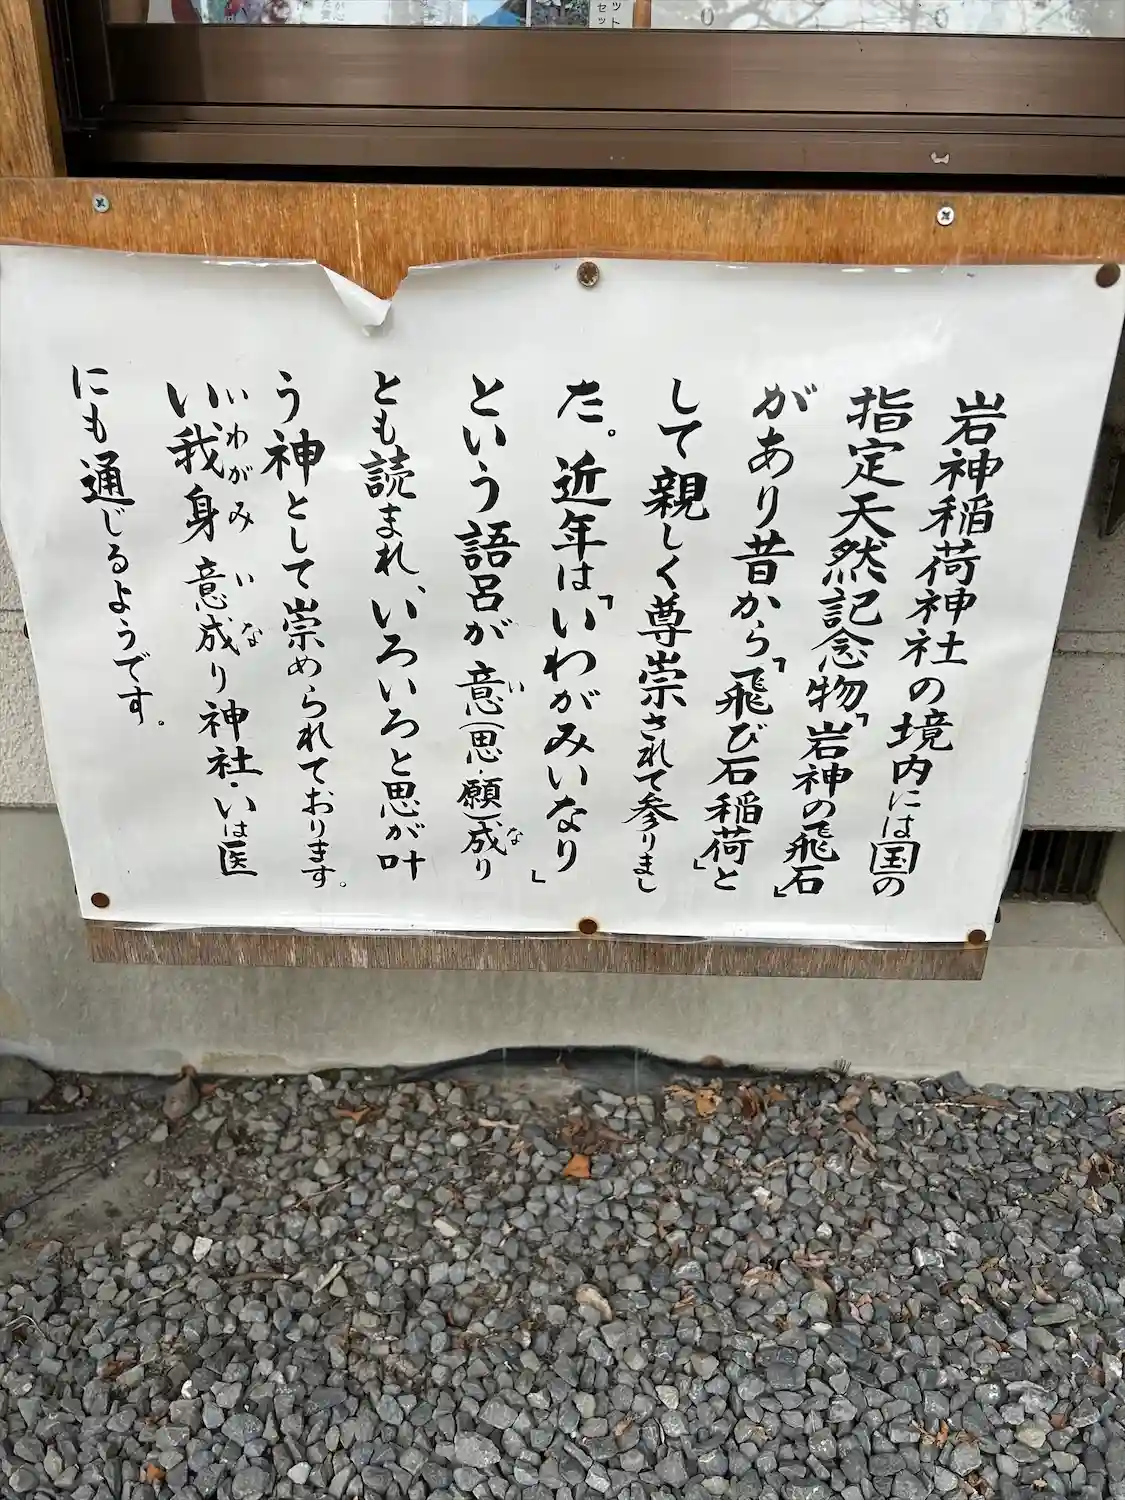 岩神稲荷神社の境内には国の
指定天然記念物「岩神の飛石」
があり昔から「飛び石稲荷」と
して親しく尊崇されて参りまし
た。近年は「いわがみいなり」
という語呂が意(思・願)成り
い
な
とも読まれ、いろいろと思が叶
う神として崇められております。
いわがみ いな
い我身意成り神社・いは医
にも通じるようです。
ット
セッ